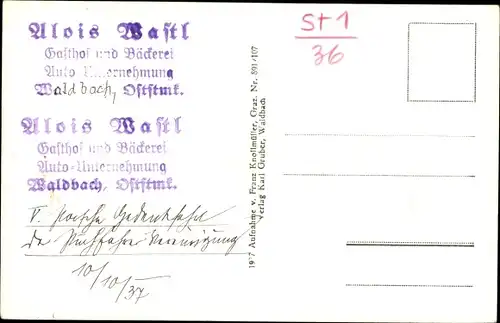 Alois Wastl
Gasthof und Bäckerei
Auto Unternehmung
Waldbach, Oststmk.
Alois Wastl
Gasthof und Bäckerei
Auto-Unternehmung
Waldbach, Oststmk.
V.
10/10/37
St 1
36
19 7 Aufnahme v. Franz Knollmüller, Graz. Nr. 891/107
Verlag Karl Gruber, Waldbach